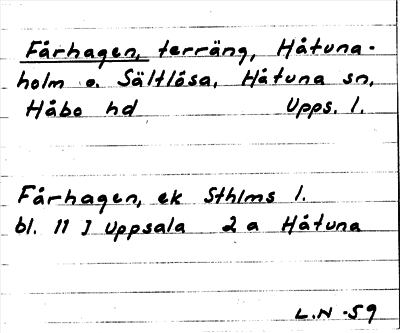 Fårhagen, terräng, Håtuna-
holm o. Sältlösa, Håtuna sn,
Håbo hd Upps. l.
Fårhagen, ek Sthlms l.
bl. 11 J Uppsala 2 a Håtuna
L.N -59